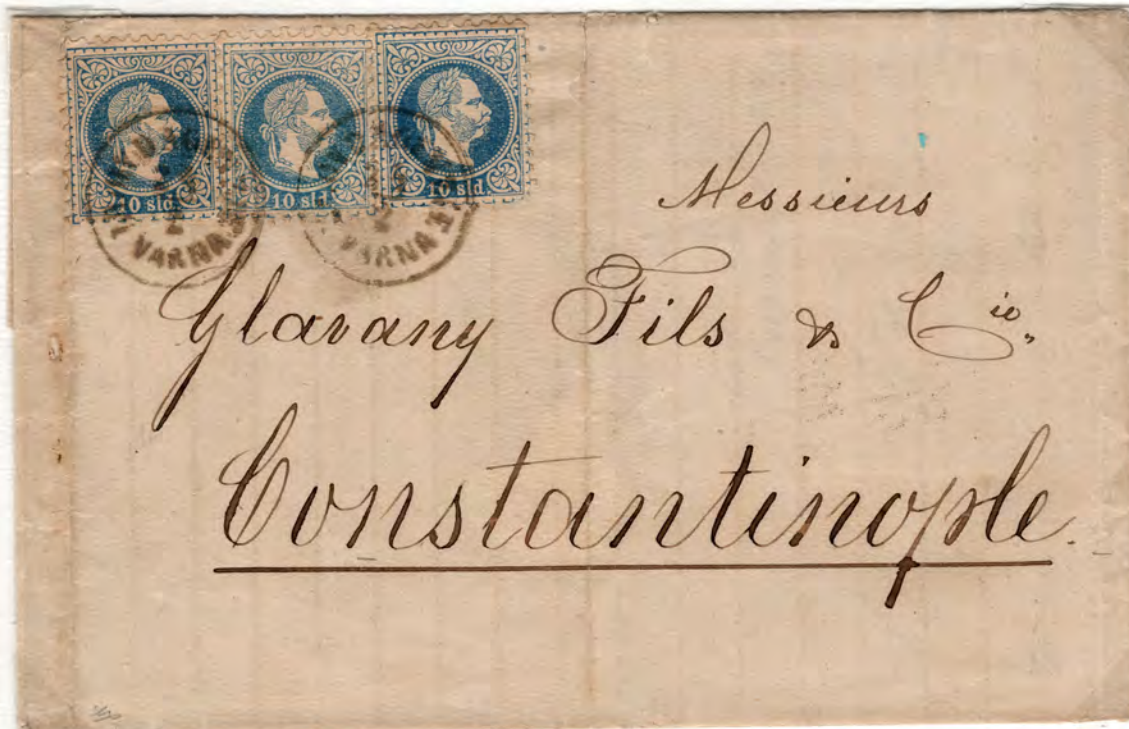 10 sld. 10 sld. 10 sld.
VARNA VARNA
Messieurs
Glavany Fils & Cie.
Constantinople.